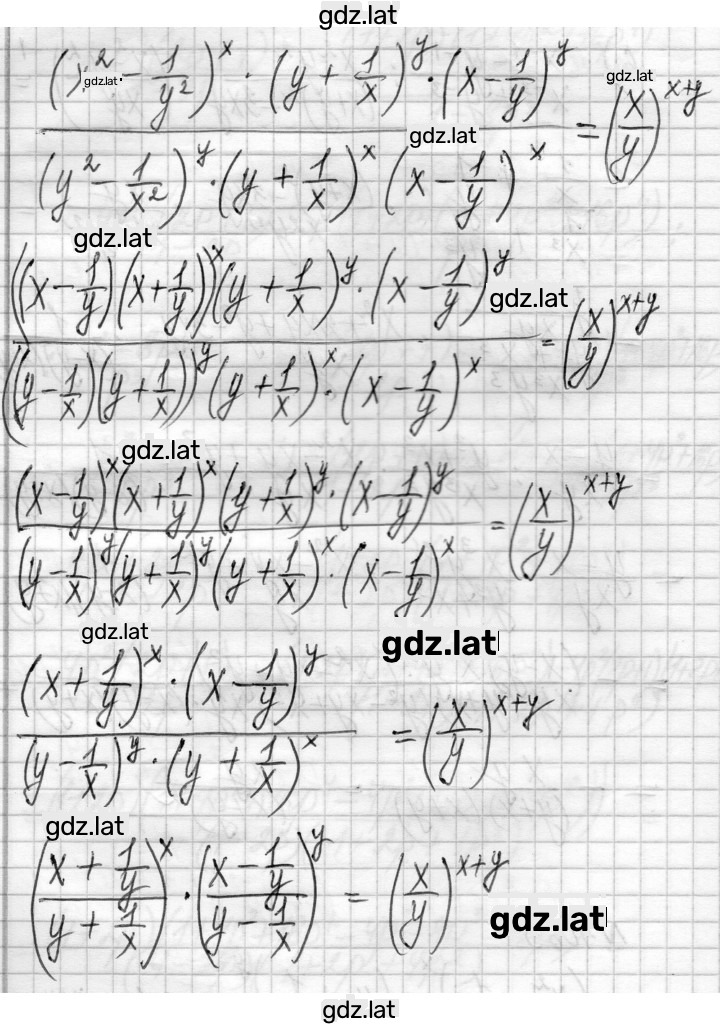 gdz.lat
(x² - 1/y²)^x · (y + 1/x)^y · (x - 1/y)^y / (y² - 1/x²)^y · (y + 1/x)^x (x - 1/y)^x = (x/y)^(x+y)
gdz.lat
gdz.lat
gdz.lat
gdz.lat
((x - 1/y)(x + 1/y))^x (y + 1/x)^y · (x - 1/y)^y / ((y - 1/x)(y + 1/x))^y (y + 1/x)^x · (x - 1/y)^x = (x/y)^(x+y)
gdz.lat
gdz.lat
(x - 1/y)^x (x + 1/y)^x (y + 1/x)^y · (x - 1/y)^y / (y - 1/x)^y (y + 1/x)^y (y + 1/x)^x · (x - 1/y)^x = (x/y)^(x+y)
gdz.lat
gdz.lat
(x + 1/y)^x · (x - 1/y)^y / (y - 1/x)^y · (y + 1/x)^x = (x/y)^(x+y)
gdz.lat
((x + 1/y)/(y + 1/x))^x · ((x - 1/y)/(y - 1/x))^y = (x/y)^(x+y)
gdz.lat
gdz.lat